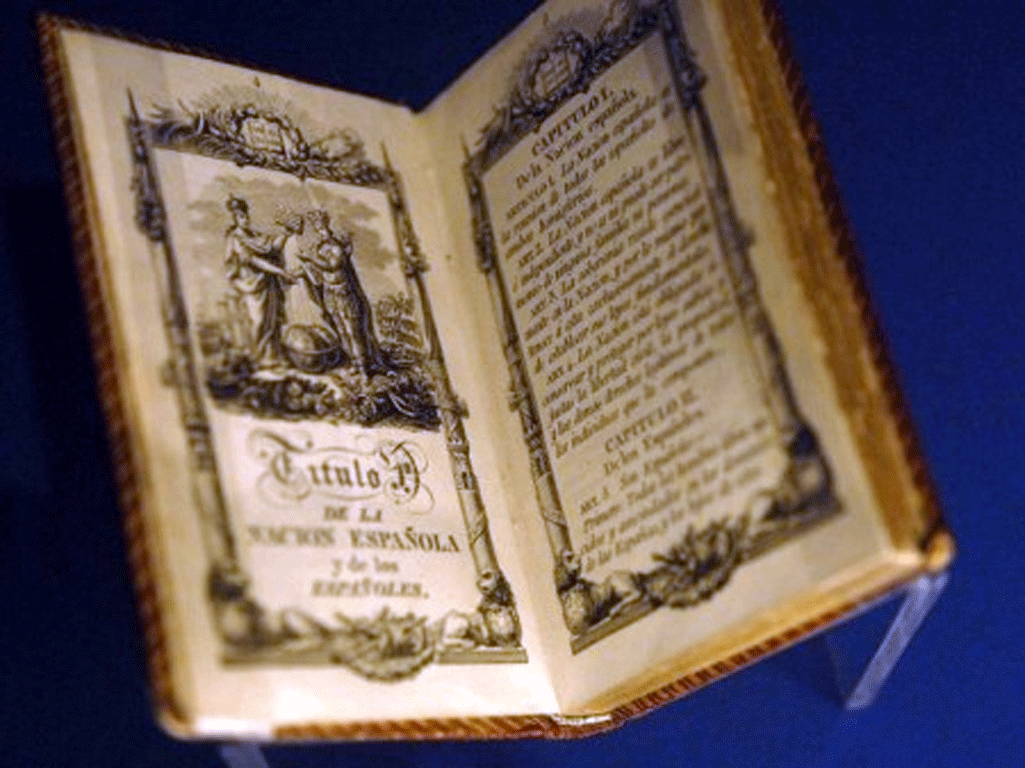 Titulo I.
DE LA
NACION ESPAÑOLA
y de los
ESPAÑOLES.
CAPITULO I.
De la Nacion española.
ARTICULO I. La Nacion española es
la reunion de todos los españoles de
ambos hemisferios.
ART. 2. La Nacion española es libre
é independiente, y no es ni puede ser patri-
monio de ninguna familia ni persona.
ART. 3. La soberania reside esencial-
mente en la Nacion, y por lo mismo per-
tenece á esta exclusivamente el derecho
de establecer sus leyes fundamentales.
ART. 4. La Nacion está obligada á
conservar y proteger por leyes sabias y
justas la libertad civil, la propiedad
y los demas derechos legítimos de todos
los individuos que la componen.
CAPITULO II.
De los Españoles.
ART. 5. Son Españoles:
Primero: Todos los hombres libres na-
cidos y avecindados en los dominios
de las Españas, y los hijos de estos.